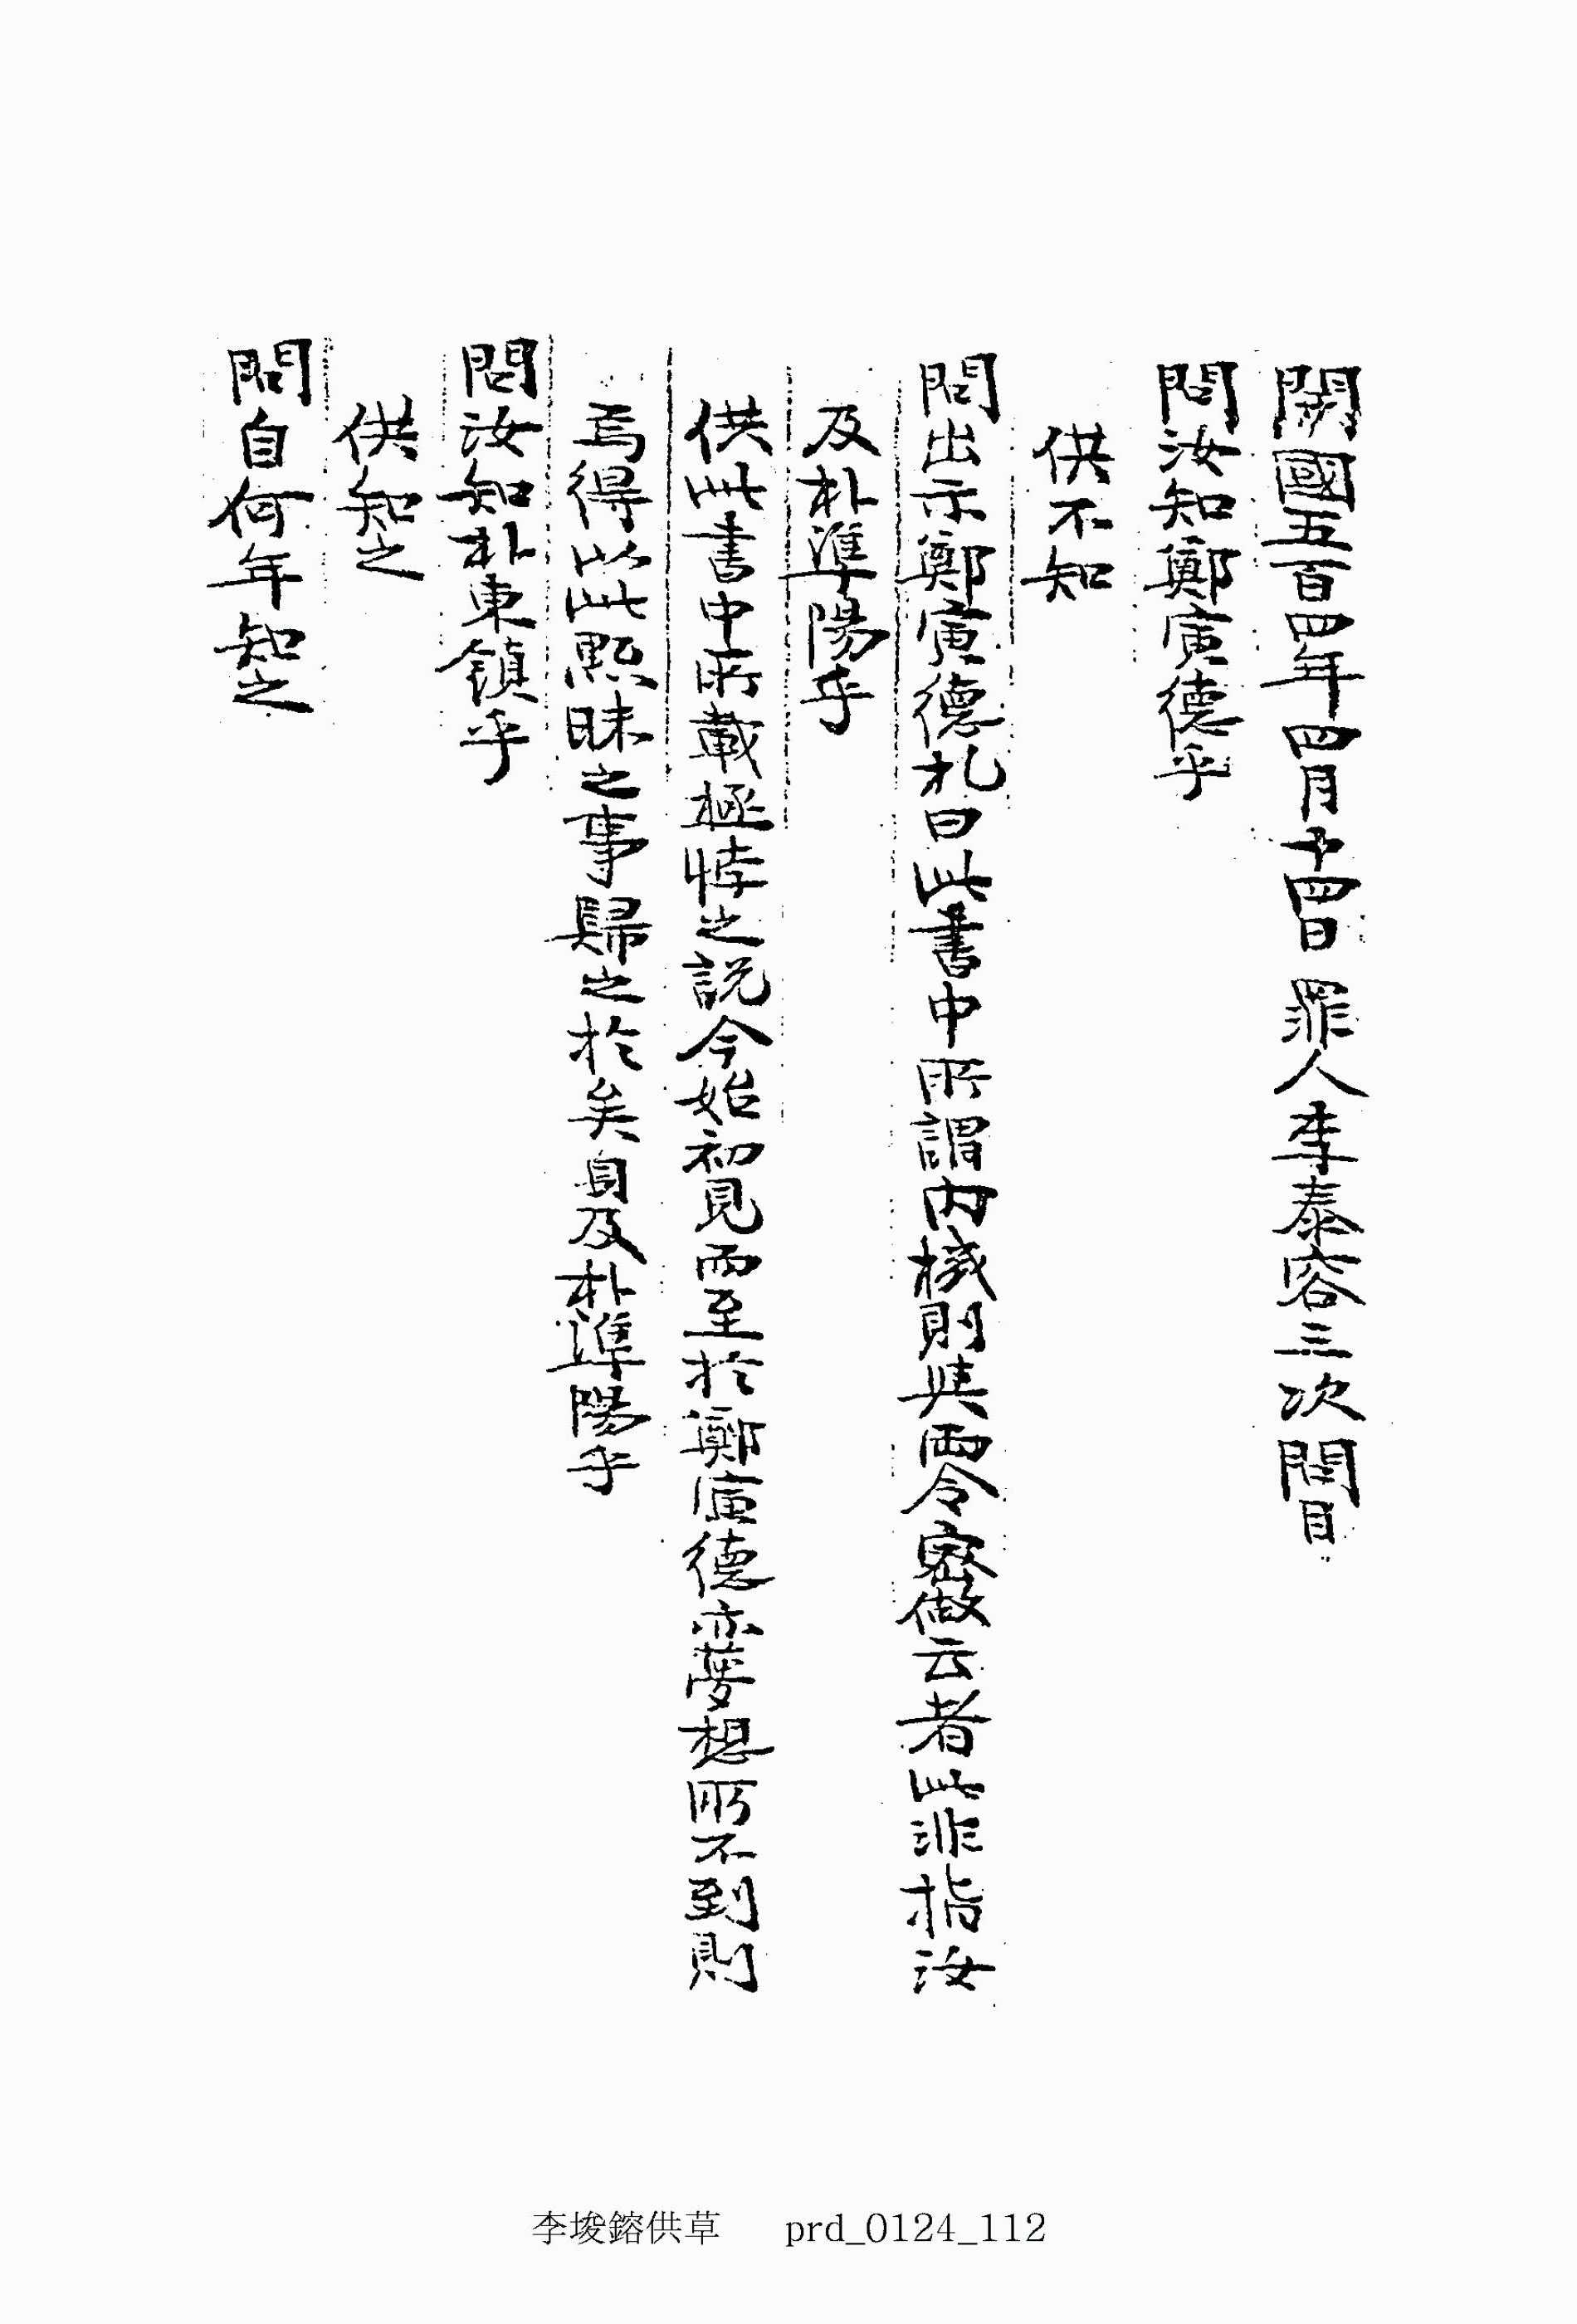 開國五百四年四月十四日 罪人李泰容三次問目
問汝知鄭寅德乎
供不知
問出示鄭寅德札曰此書中所謂內機則與兩令密做云者此非指汝
及朴準陽乎
供此書中所載極悖之說今始初見而至於鄭寅德亦夢想所不到則
焉得以此黯昧之事歸之於矣身及朴準陽乎
問汝知朴東鎭乎
供知之
問自何年知之
李埈鎔供草 prd_0124_112